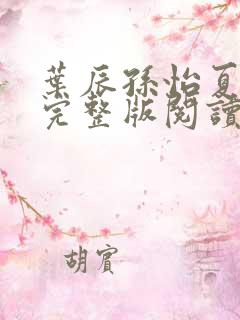 葉辰孫怡夏
完整版閱讀
胡賓